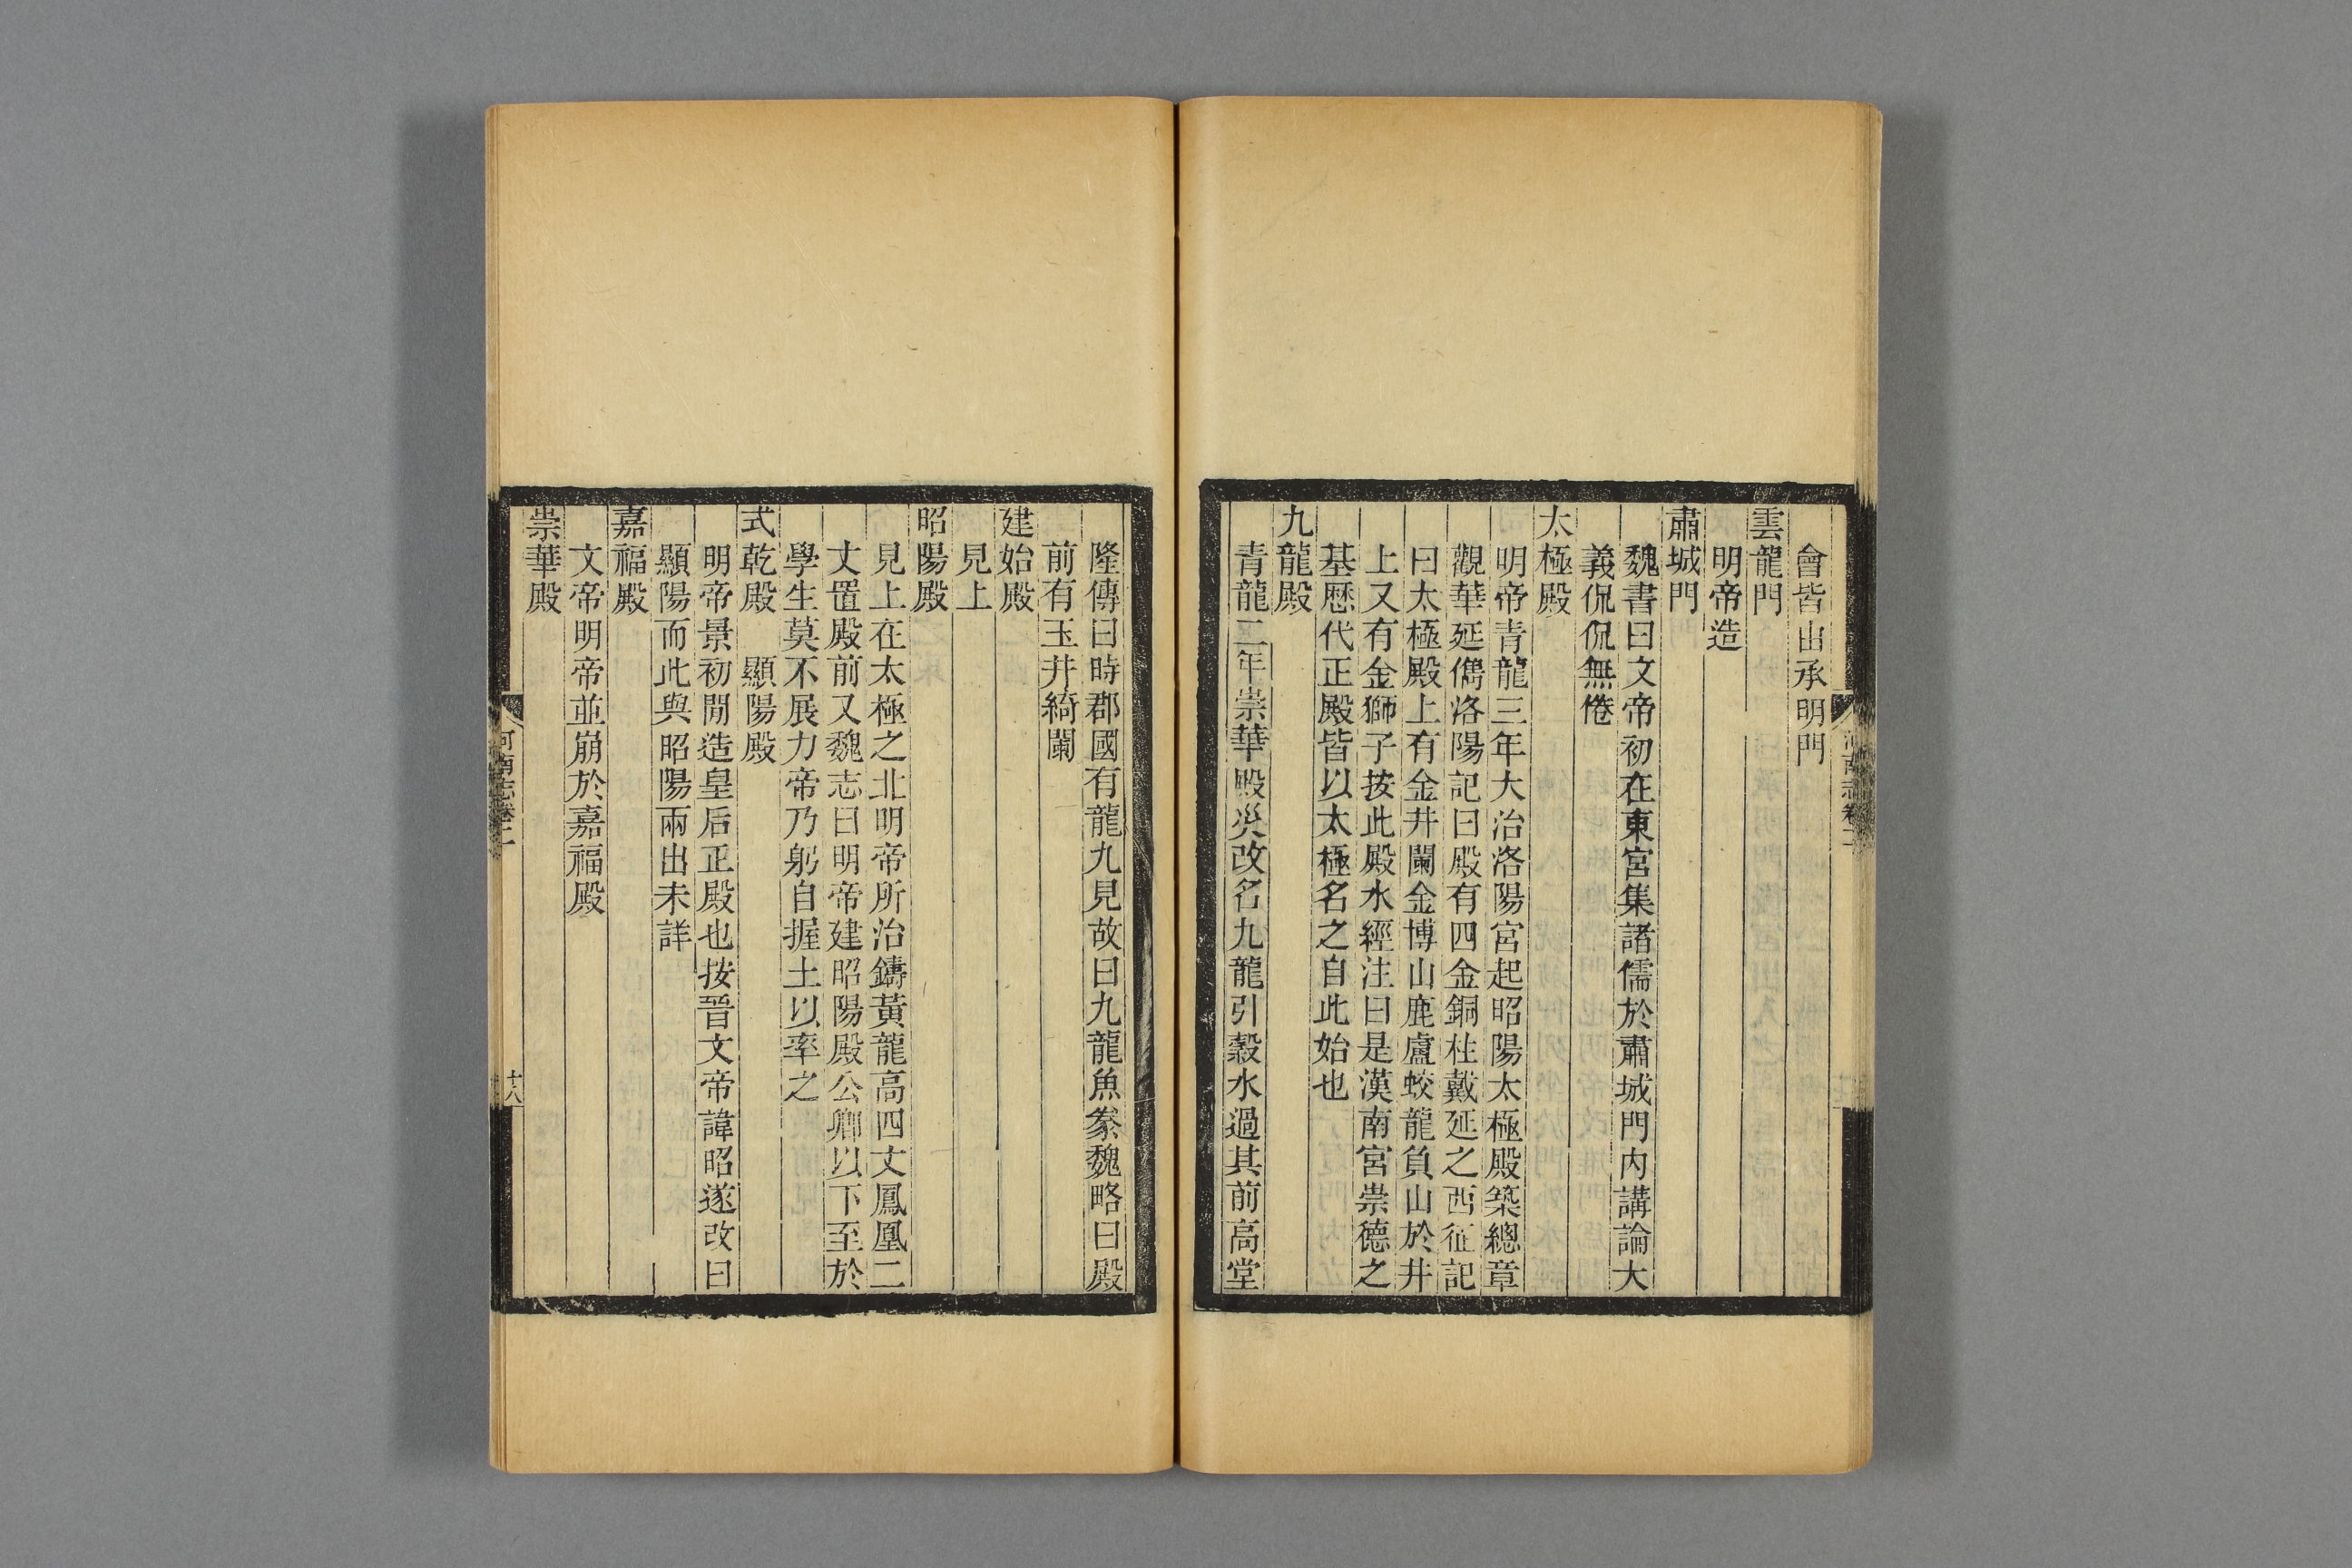 會皆出承明門
雲龍門
明帝造
肅城門
魏書曰文帝初在東宮集諸儒於肅城門內講論大
義侃侃無倦
太極殿
明帝青龍三年大治洛陽宮起昭陽太極殿築總章
觀華延儁洛陽記曰殿有四金銅柱戴延之西征記
曰太極殿上有金井闌金博山鹿盧蛟龍負山於井
上又有金獅子按此殿水經注曰是漢南宮崇德之
基歷代正殿皆以太極名之自此始也
九龍殿
青龍二年崇華殿災改名九龍引穀水過其前高堂
隆傳曰時郡國有龍九見故曰九龍魚豢魏略曰殿
前有玉井綺闌
建始殿
見上
昭陽殿
見上在太極之北明帝所治鑄黃龍高四丈鳳凰二
丈置殿前又魏志曰明帝建昭陽殿公卿以下至於
學生莫不展力帝乃躬自握土以率之
式乾殿　顯陽殿
明帝景初閒造皇后正殿也按晉文帝諱昭遂改曰
顯陽而此與昭陽兩出未詳
嘉福殿
文帝明帝並崩於嘉福殿
崇華殿
河南志卷二
十八